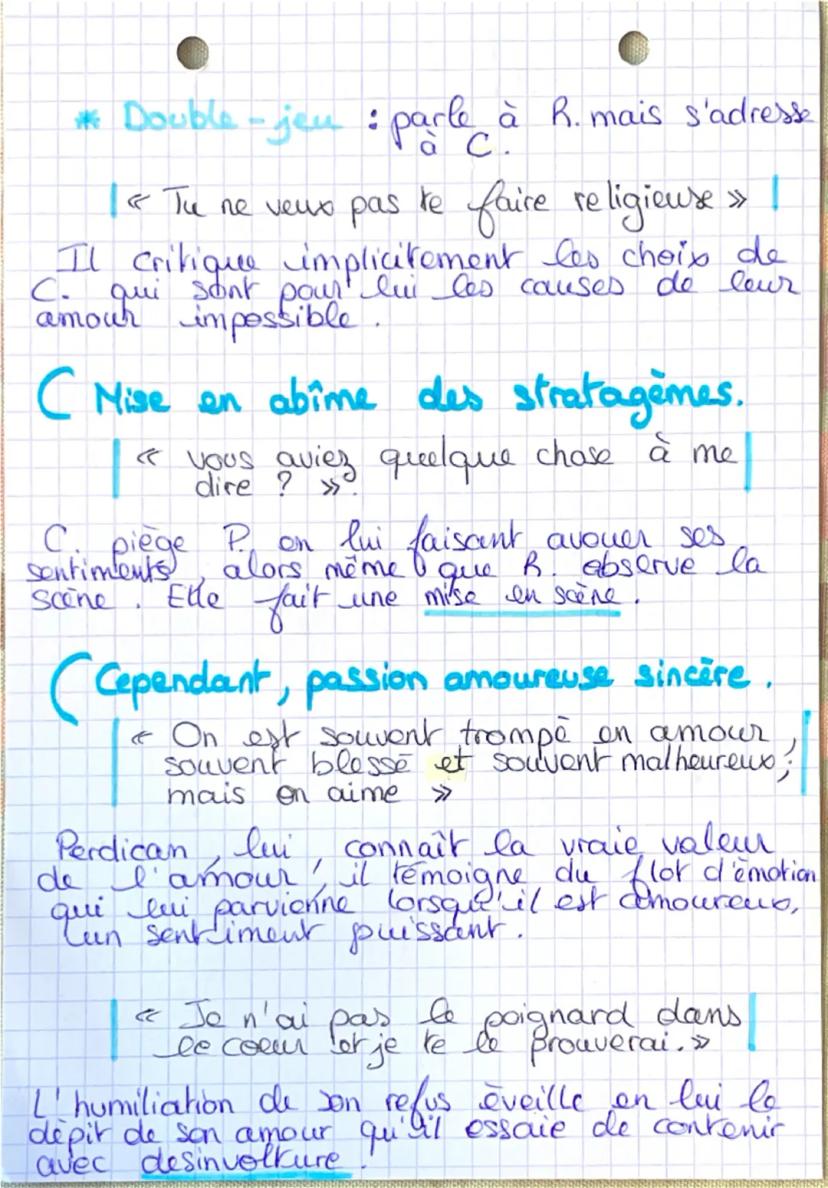 * Double-jeu : parle à R. mais s'adresse
à C.
« Tu ne veux pas te faire religieuse »
Il critique implicitement les choix de
C. qui sont pour lui les causes de leur
amour impossible.
Mise en abîme des stratagèmes.
« vous aviez quelque chose à me
dire ? ».
C. piège P. en lui faisant avouer ses
sentiments, alors même que R. observe la
scène. Elle fait une mise en scène.
Cependant, passion amoureuse sincère.
« On est souvent trompé en amour,
souvent blessé et souvent malheureux;
mais on aime »
Perdican, lui, connaît la vraie valeur
de l'amour, il témoigne du flot d'émotion
qui lui parvienne lorsqu'il est amoureux,
un sentiment puissant.
« Je n'ai pas le poignard dans
le coeur et je te le prouverai. »
L'humiliation de son refus éveille en lui le
dépit de son amour qu'il essaie de contenir
avec desinvolture.